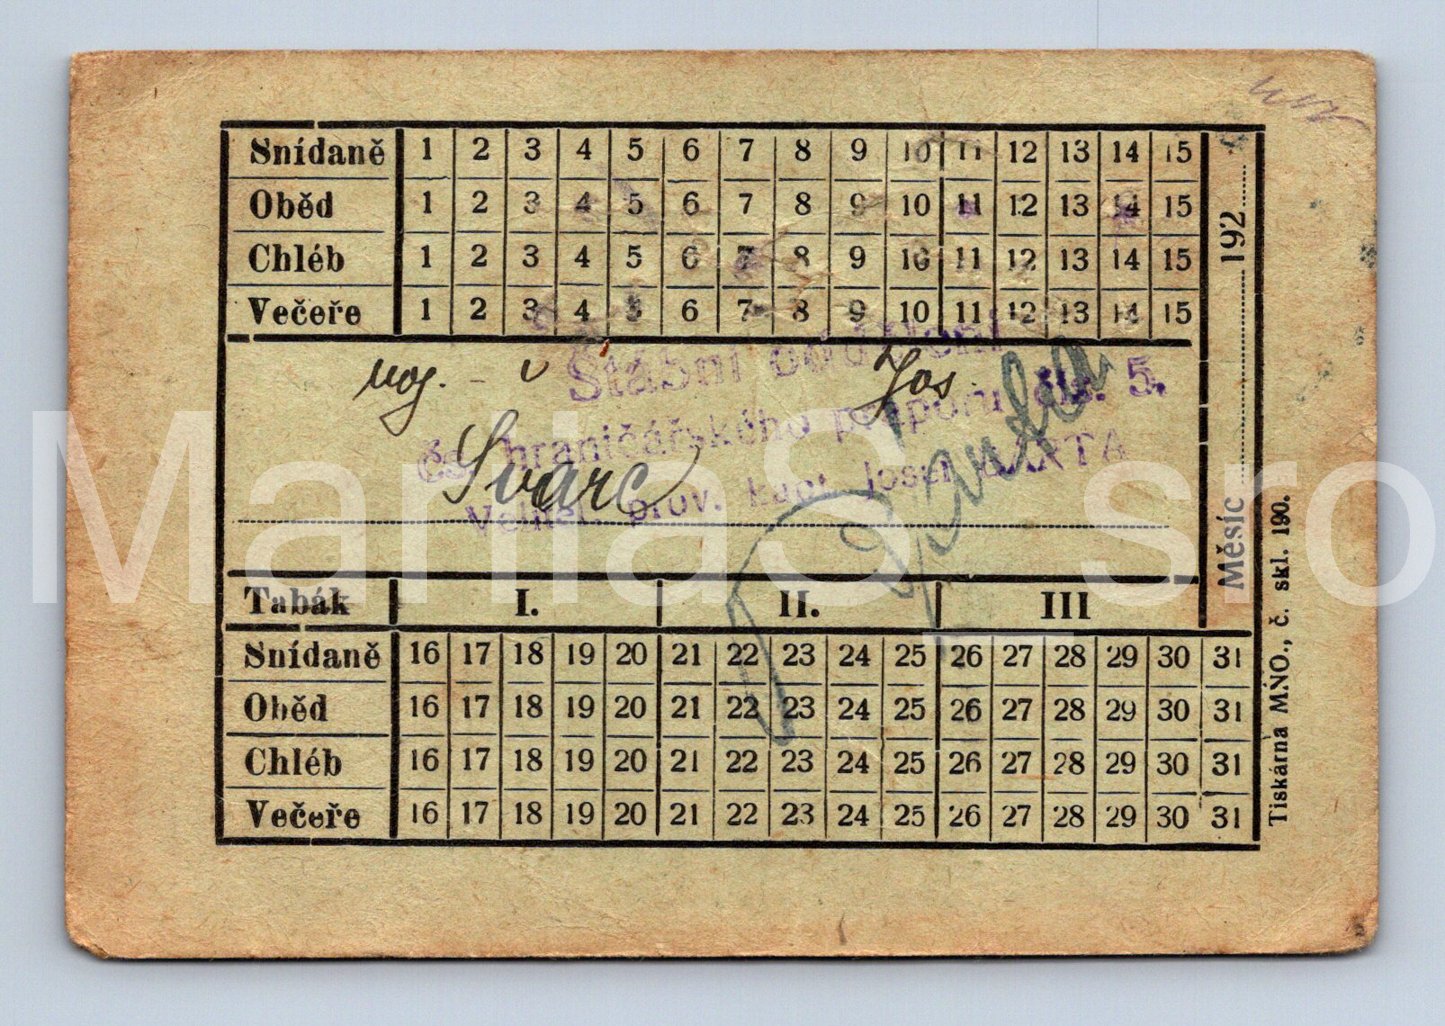 Snídaně 1 2 3 4 5 6 7 8 9 10 11 12 13 14 15
Oběd 1 2 3 4 5 6 7 8 9 10 11 12 13 14 15
Chléb 1 2 3 4 5 6 7 8 9 10 11 12 13 14 15
Večeře 1 2 3 4 5 6 7 8 9 10 11 12 13 14 15
Měsíc 192
voj. Jos.
Švarc
Štábní
čs. hraničářského praporu čís. 5.
Velitel: prov. kapt. Josef BARTA
Tabák I. II. III
Snídaně 16 17 18 19 20 21 22 23 24 25 26 27 28 29 30 31
Oběd 16 17 18 19 20 21 22 23 24 25 26 27 28 29 30 31
Chléb 16 17 18 19 20 21 22 23 24 25 26 27 28 29 30 31
Večeře 16 17 18 19 20 21 22 23 24 25 26 27 28 29 30 31
Tiskárna MNO., č. skl. 190.
ManiaS_sro